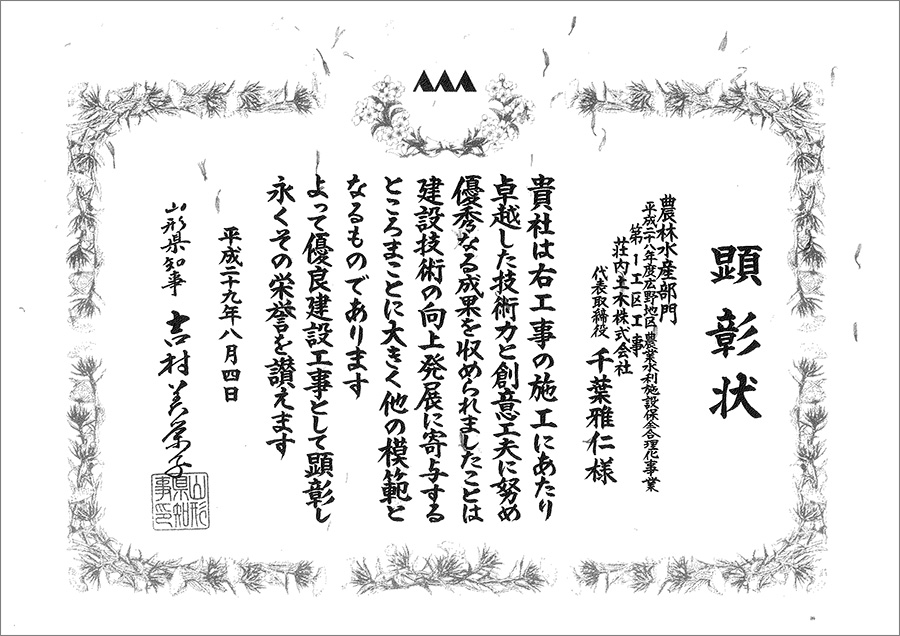 顕彰状
農林水産部門
平成二十八年度広野地区農業水利施設保全合理化事業
第1工区工事
荘内土木株式会社
代表取締役 千葉雅仁様
貴社は右工事の施工にあたり
卓越した技術力と創意工夫に努め
優秀なる成果を収められましたことは
建設技術の向上発展に寄与する
ところまことに大きく他の模範と
なるものであります
よって優良建設工事として顕彰し
永くその栄誉を讃えます
平成二十九年八月四日
山形県知事 吉村美栄子
山形県知事印